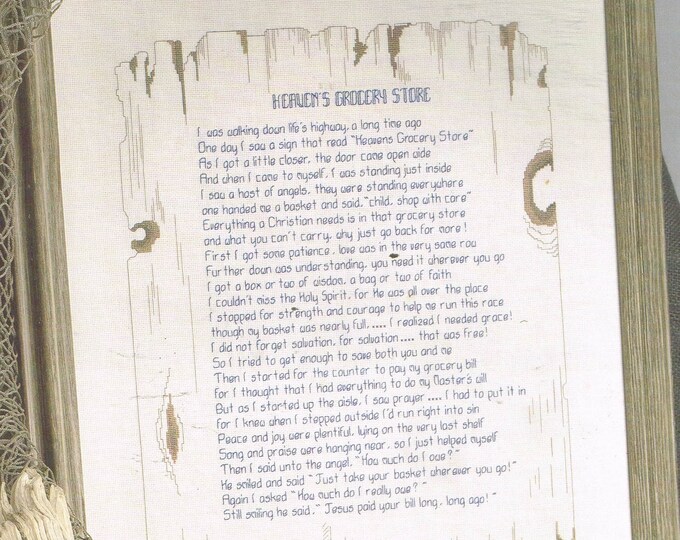 HEAVEN'S GROCERY STORE
I was walking down life's highway, a long time ago
One day I saw a sign that read "Heavens Grocery Store"
As I got a little closer, the door came open wide
And when I came to myself, I was standing just inside
I saw a host of angels, they were standing everywhere
one handed me a basket and said, "child, shop with care"
Everything a Christian needs is in that grocery store
and what you can't carry, why just go back for more!
First I got some patience, love was in the very same row
Further down was understanding, you need it wherever you go
I got a box or two of wisdom, a bag or two of Faith
I couldn't miss the Holy Spirit, for He was all over the place
I stopped for strength and courage to help me run this race
though my basket was nearly full, .... I realized I needed grace!
I did not forget salvation, for salvation .... that was free!
So I tried to get enough to save both you and me
Then I started for the counter to pay my grocery bill
for I thought that I had everything to do my Master's will
But as I started up the aisle, I saw prayer .... I had to put it in
for I knew when I stepped outside I'd run right into sin
Peace and joy were plentiful, lying on the very last shelf
Song and praise were hanging near, so I just helped myself
Then I said unto the angel, "How much do I owe?"
He smiled and said "Just take your basket wherever you go!"
Again I asked "How much do I really owe?"
Still smiling he said, "Jesus paid your bill long, long ago!"